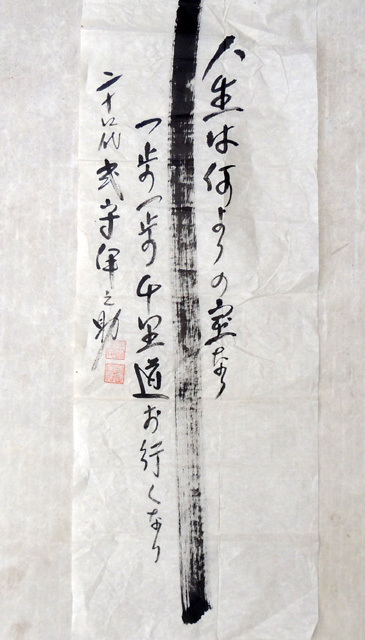 人生は何よりの宝なり
一歩一歩千里道お行くなり
二十四代 式守伊之助